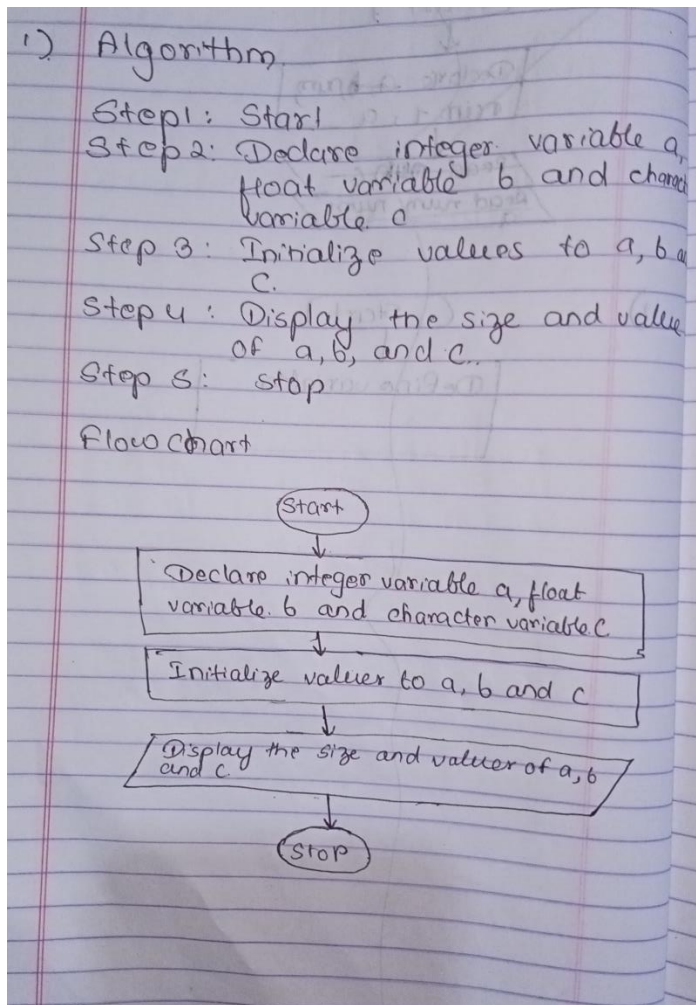 1) Algorithm
Step1: Start
Step 2: Declare integer variable a,
float variable b and charact
variable c
Step 3: Initialize values to a, b a
c.
Step 4: Display the size and value
of a, b, and c.
Step 5: stop
Flow chart
Start
Declare integer variable a, float
variable b and character variable c
Initialize values to a, b and c
Display the size and values of a, b
and c
Stop